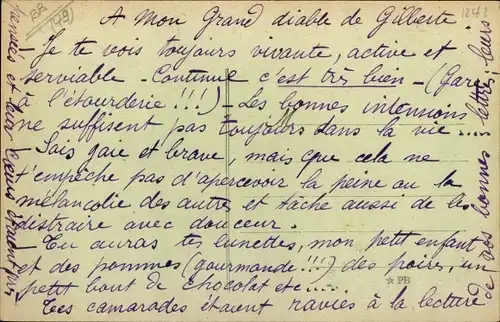 BR
(49)
1242
A Mon Grand diable de Gilberte.
- Je te vois toujours vivante, active et
serviable - Continue c'est très bien - (Gare
à l'étourderie !!!) - Les bonnes intensions
ne suffisent pas toujours dans la vie....
- Sois gaie et brave, mais que cela ne
t'empêche pas d'apercevoir la peine ou la
mélancolie des autres et tâche aussi de les
distraire avec douceur.
- Tu auras tes lunettes, mon petit enfant
et des pommes (gourmande !!!) des poires, un
petit bout de chocolat etc....
Tes camarades étaient ravies à la lecture
de vos bonnes lettres, leurs
et leur
PB